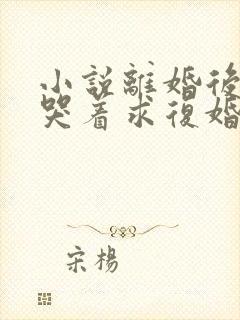 小説離婚後
哭着求復婚
宋楊